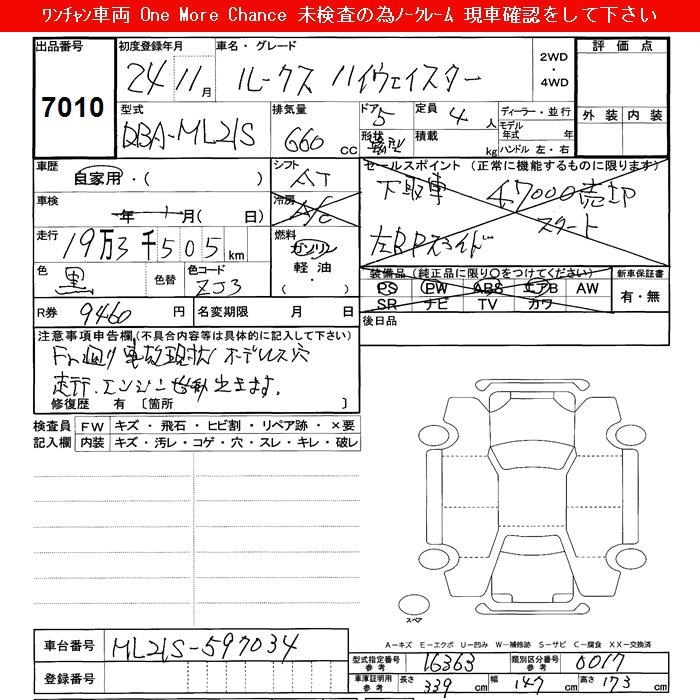 ﾜﾝﾁｬﾝ車両 One More Chance 未検査の為ﾉｰｸﾚｰﾑ 現車確認をして下さい
出品番号 初度登録年月 車名・グレード 評価点
7010 24 11月 ルークス ハイウェイスター 2WD・4WD
型式 排気量 ドア 定員 ディーラー・並行 外装 内装
DBA-ML21S 660cc 5 4人 モデル年式 年
形状 積載 kg ハンドル 左・右
車歴 シフト セールスポイント (正常に機能するものに限ります)
自家用・( ) AT 下取車 47000売切
車検 冷房 スタート
年 月( 日) A/C
走行 燃料 左RPスライド
19万3千505km ガソリン
軽油
・( )
色 色替 色コード 装備品(純正品に限り○をつけてください) 新車保証書
黒 ZJ3 PS PW ABS エアB AW 有・無
SR ナビ TV カワ
R券 9460円 名変期限 月 日 後日品
注意事項申告欄(不具合内容等は具体的に記入して下さい)
Fr廻り事故現状
走行.エンジン始動出来ます.
修復歴 有〔箇所 〕
検査員 FW キズ・飛石・ヒビ割・リペア跡・×要
記入欄 内装 キズ・汚レ・コゲ・穴・スレ・キレ・破レ
スペア
A－キズ E－エクボ U－凹み W－補修跡 S－サビ C－腐食 XX－交換済
車台番号 ML21S-597034
型式指定番号 参考 16363 類別区分番号 参考 0017
登録番号
車庫証明用 参考 長さ 339cm 幅 147cm 高さ 173cm